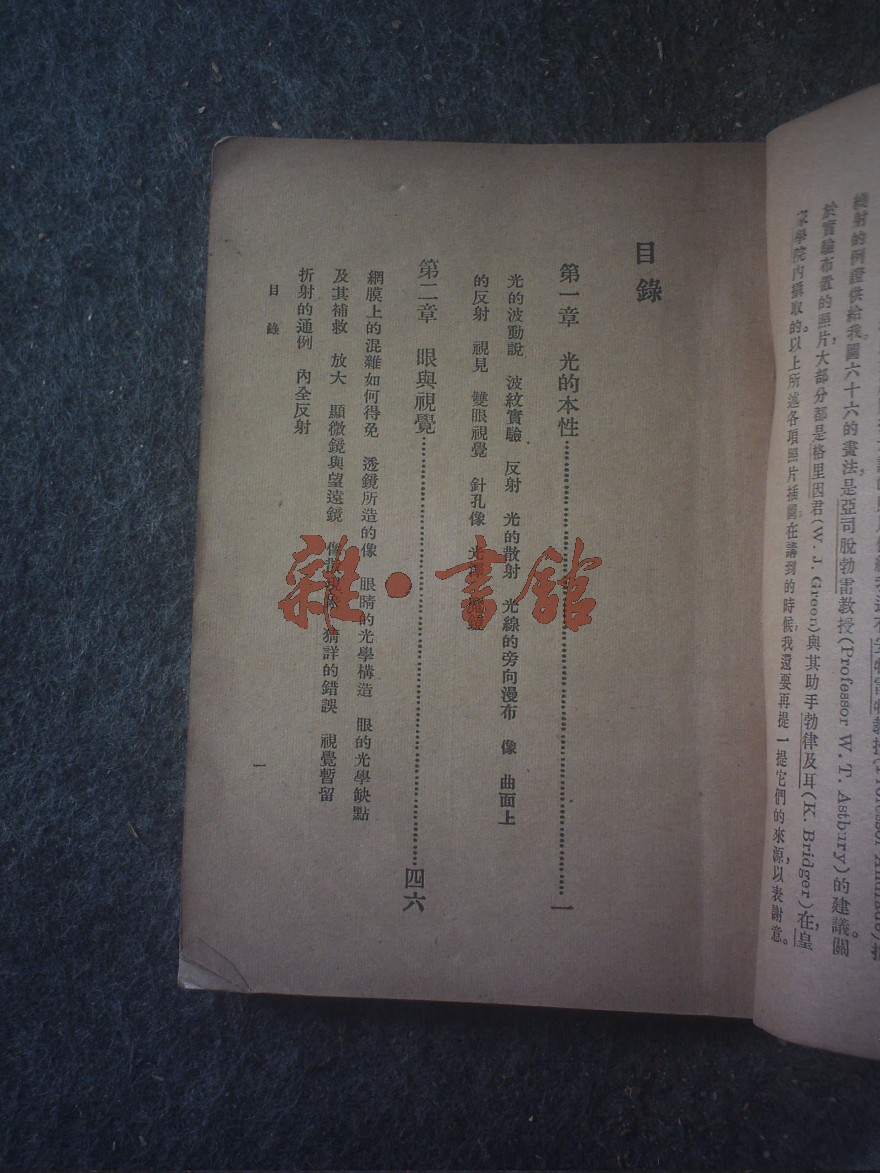 續射的例證供給我。圖六十六的畫法,是亞司脫勃雷教授(Professor W. T. Astbury)的建議。關
於實驗布置的照片,大部分都是格里因君(W. J. Green)與其助手勃律及耳(K. Bridger)在皇
家學院內攝取的。以上所述各項照片插圖,在講到的時候,我還要再提一提它們的來源,以表謝意。
目錄
第一章 光的本性 一
光的波動說 波紋實驗 反射 光的散射 光線的旁向漫布 像 曲面上
的反射 視見 雙眼視覺 針孔像 光
第二章 眼與視覺 四六
網膜上的混雜如何得免 透鏡所造的像 眼睛的光學構造 眼的光學缺點
及其補救 放大 顯微鏡與望遠鏡 像 猜詳的錯誤 視覺暫留
折射的通例 內全反射
目錄
一
雜·書館